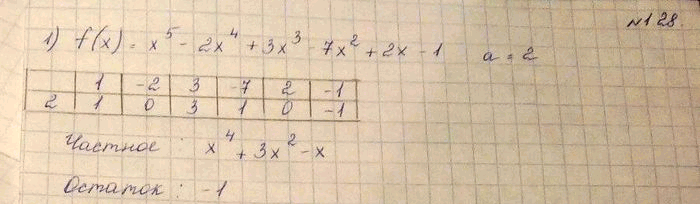 №128.
1) f(x) = x⁵ - 2x⁴ + 3x³ - 7x² + 2x - 1 a = 2
1 -2 3 -7 2 -1
2 1 0 3 -1 0 -1
Частное : x⁴ + 3x² - x
Остаток : -1